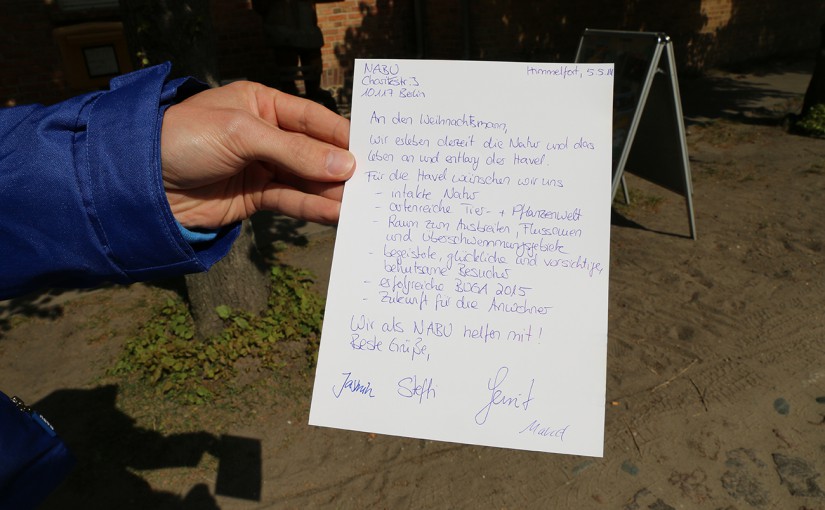 NABU
Himmelfort, 5.5.14
Charitéstr. 3
10117 Berlin
An den Weihnachtsmann,
wir erleben derzeit die Natur und das
Leben an und entlang der Havel.
Für die Havel wünschen wir uns
- intakte Natur
- artenreiche Tier- + Pflanzenwelt
- Raum zum Ausbreiten, Flussauen
und Überschwemmungsgebiete
- begeisterte, glückliche und vorsichtige,
behutsame Besucher
- erfolgreiche BUGA 2015
- Zukunft für die Anwohner
Wir als NABU helfen mit!
Beste Grüße,
Jasmin Steffi Gerrit